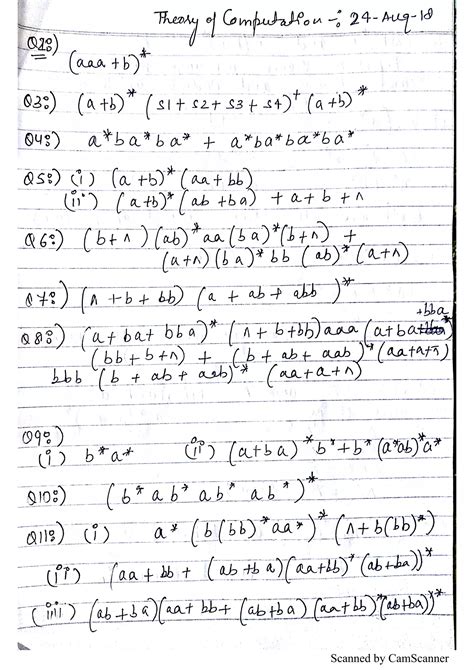 Theory of Computation -: 24-Aug-18
Q2:)
(aaa + b)*
Q3:) (a+b)* (S1 + S2 + S3 + S4)+ (a+b)*
Q4:) a*ba*ba* + a*ba*ba*ba*
Q5:) (i) (a+b)* (aa+bb)
(ii) (a+b)* (ab+ba) + a + b + ᴧ
Q6:) (b+ᴧ)(ab)*aa(ba)*(b+ᴧ) +
(a+ᴧ)(ba)*bb (ab)*(a+ᴧ)
Q7:) (ᴧ + b + bb) (a + ab + abb)*
+bba
Q8:) (a + ba + bba)* (ᴧ + b + bb)aaa (a+ba+
(bb + b + ᴧ) + (b + ab + aab)*(aa+a+ᴧ)
bbb (b + ab + aab)* (aa+a+ᴧ)
Q9:)
(i) b*a* (ii) (a+ba)*b* + b*(a*ab)*a*
Q10:) (b*ab*ab*ab*)*
Q11:) (i) a*(b(bb)*aa*)*(ᴧ+b(bb)*)
(ii) (aa + bb + (ab+ba)(aa+bb)*(ab+ba))*
(iii) (ab+ba)(aa+bb+(ab+ba)(aa+bb)*(ab+ba))*
Scanned by CamScanner